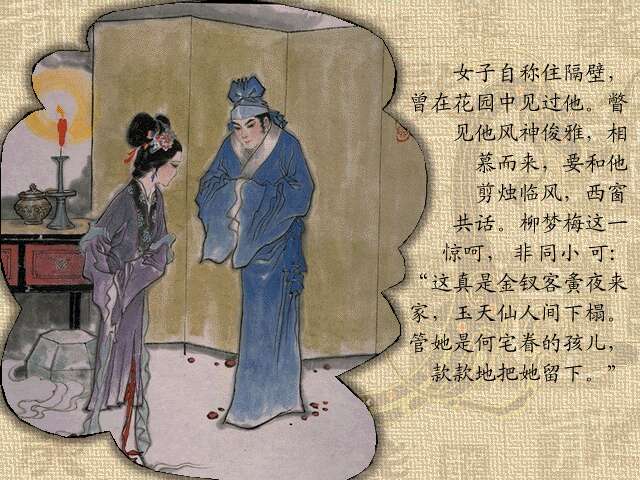 女子自称住隔壁，
曾在花园中见过他。瞥
见他风神俊雅，相
慕而来，要和他
剪烛临风，西窗
共话。柳梦梅这一
惊呵， 非同小 可：
“这真是金钗客夤夜来
家，玉天仙人间下榻。
管她是何宅眷的孩儿，
款款地把她留下。”